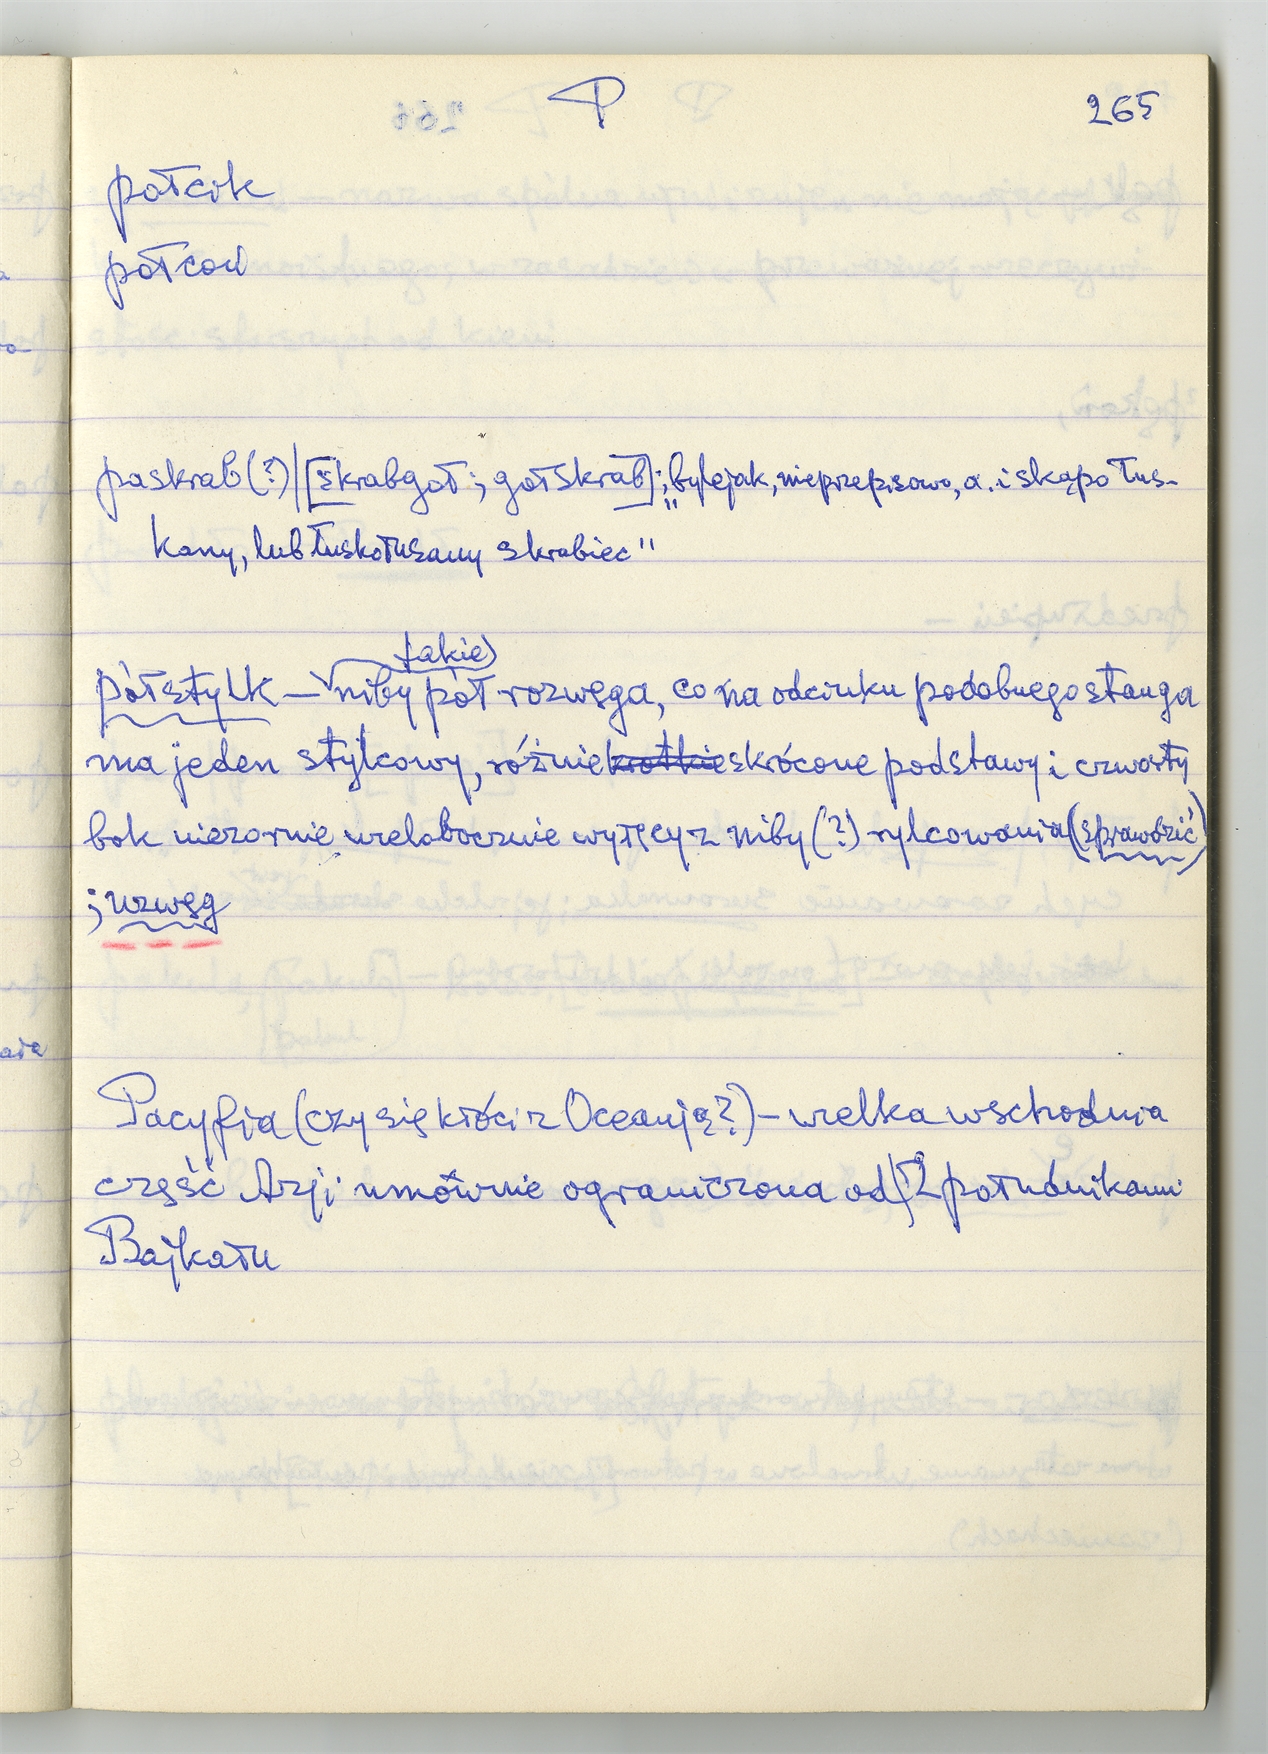 P 265
połcik
połcoń
paskrab(?)|[skrabgoł; gołskrab]; „bylejak, nieprzepisowo, a. i skąpo łus-
kany, lub łuskołusany skrabiec"
takie)
półstylk – niby pół rozwęga, co na odcinku podobnego stanga
ma jeden stylcowy, różnie krótkie skrócone podstawy i czwarty
bok niezornie wielobocznie wytęcy z niby (?) rylcowania (sprawdzić)
; uzwęg
Pacyfja (czy się kłóci z Oceanją?) – wielka wschodnia
część Azji umównie ograniczona od 12 południkami
Bajkału